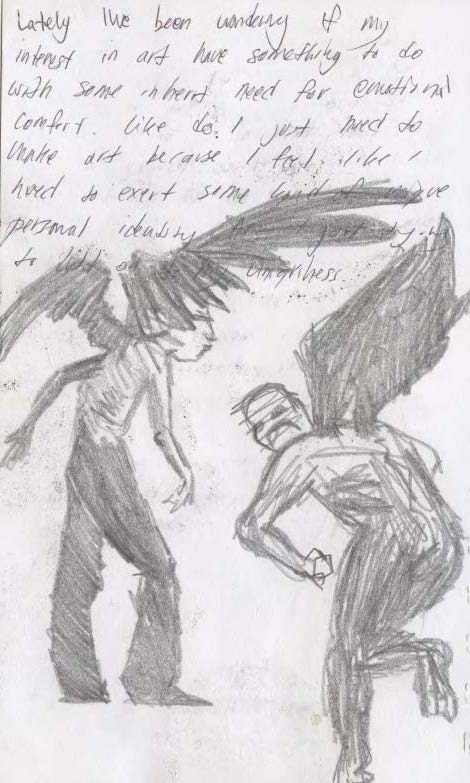 Lately I've been wondering if my
interest in art have something to do
with some inherit need for emotional
comfort. Like do I just need to
make art because I feel like I
need to exert some kind of
personal identity
to hold on uniqueness